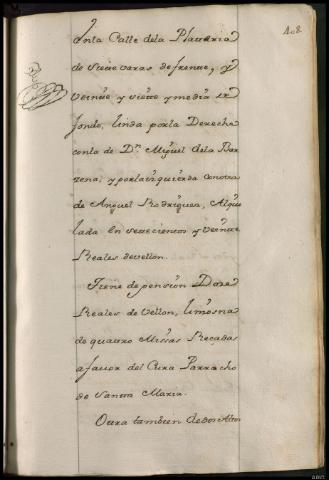 408
enla Calle dela Plateria
de Siete varas defrente, y
veinte y siete y media de
fondo, linda porla Derecha
conla de Dn. Miguel dela Bar
zena, y porla izquierda conotra
de Anguel Rodriguez, Alqui
lada en setecientos y veinte
Reales devellon.
Tiene de pensión Doze
Reales de Vellon, limosna
de quatro Missas Rezadas
afavor del Cura Parracho
de Santa Maria.
Outra tambien dedos Altos